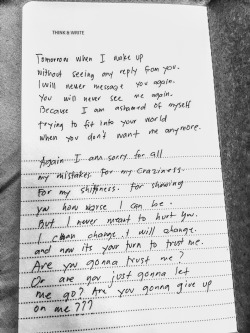 THINK & WRITE
Tomorrow when I wake up
without seeing any reply from you.
I will never message you again.
You will never see me again.
Because I am ashamed of myself
trying to fit into your world
when you don't want me anymore.
Again I am sorry for all
my mistakes. For my craziness.
For my shittiness. For showing
you how worse I can be.
But I never meant to hurt you.
I can change. I will change.
and now its your turn to trust me.
Are you gonna trust me?
Or are you just gonna let
me go? Are you gonna give up
on me???